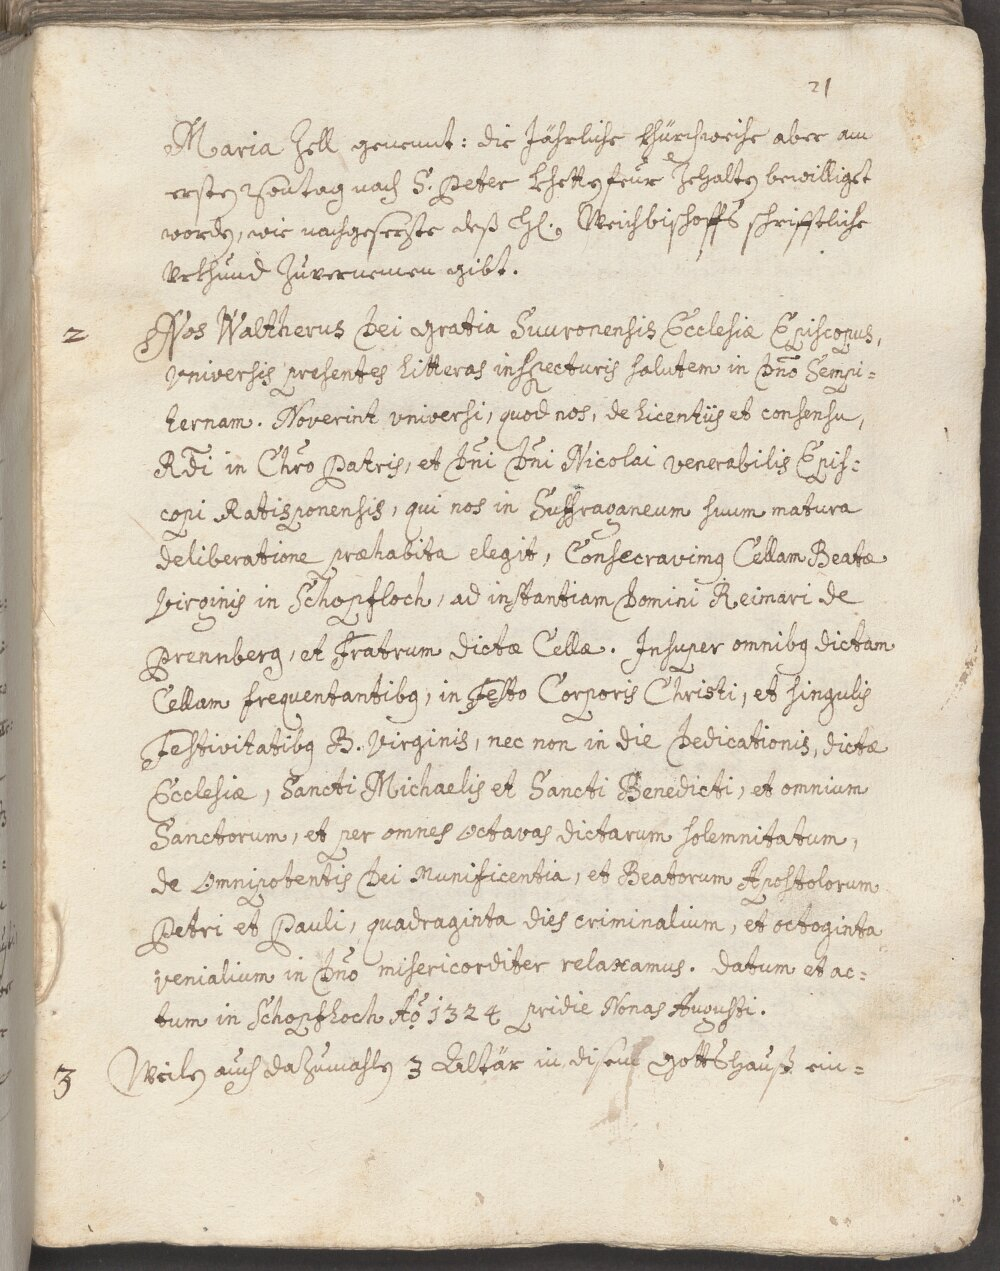 21
Maria Zell genennt: die Jährliche Khürchweihe aber am
ersten Sontag nach S. Peter Khettenfeür Zehalten bewilligt
worden, wie nachgesezte deß Weichbischoffs schrifftliche
Vrkhund Zuvernemen gibt.
2 Nos Waltherus Dei gratia Suuronensis Ecclesiæ Episcopus,
Vniversis presentes Litteras inspecturis salutem in Dño Sempi=
ternam. Noverint vniversi, quod nos, de Licentijs et consensu,
Rdi in Chro Patris, et Dñi Dñi Nicolai venerabilis Epis=
copi Ratisponensis, qui nos in Suffraganeum suum matura
deliberatione præhabita elegit, Consecravimq Cellam Beatæ
Virginis in Schopfloch, ad instantiam Domini Reimari de
Prennberg, et Fratrum dictæ Cellæ. Insuper omnibq dictam
Cellam frequentantibq, in Festo Corporis Christi, et singulis
Festivitatibq B. Virginis, nec non in die Dedicationis, dictæ
Ecclesiæ, Sancti Michaelis et Sancti Benedicti, et omnium
Sanctorum, et per omnes octavas dictarum solemnitatum,
de Omnipotentis Dei Munificentia, et Beatorum Apostolorum
Petri et Pauli, quadraginta dies criminalium, et octoginta
venialium in Dño misericorditer relaxamus. Datum et ac=
tum in Schopfloch Aõ 1324 pridie Nonas Augusti.
3 Weilen auch dazumahlen 3 Altär in disem Gottshauß ein=